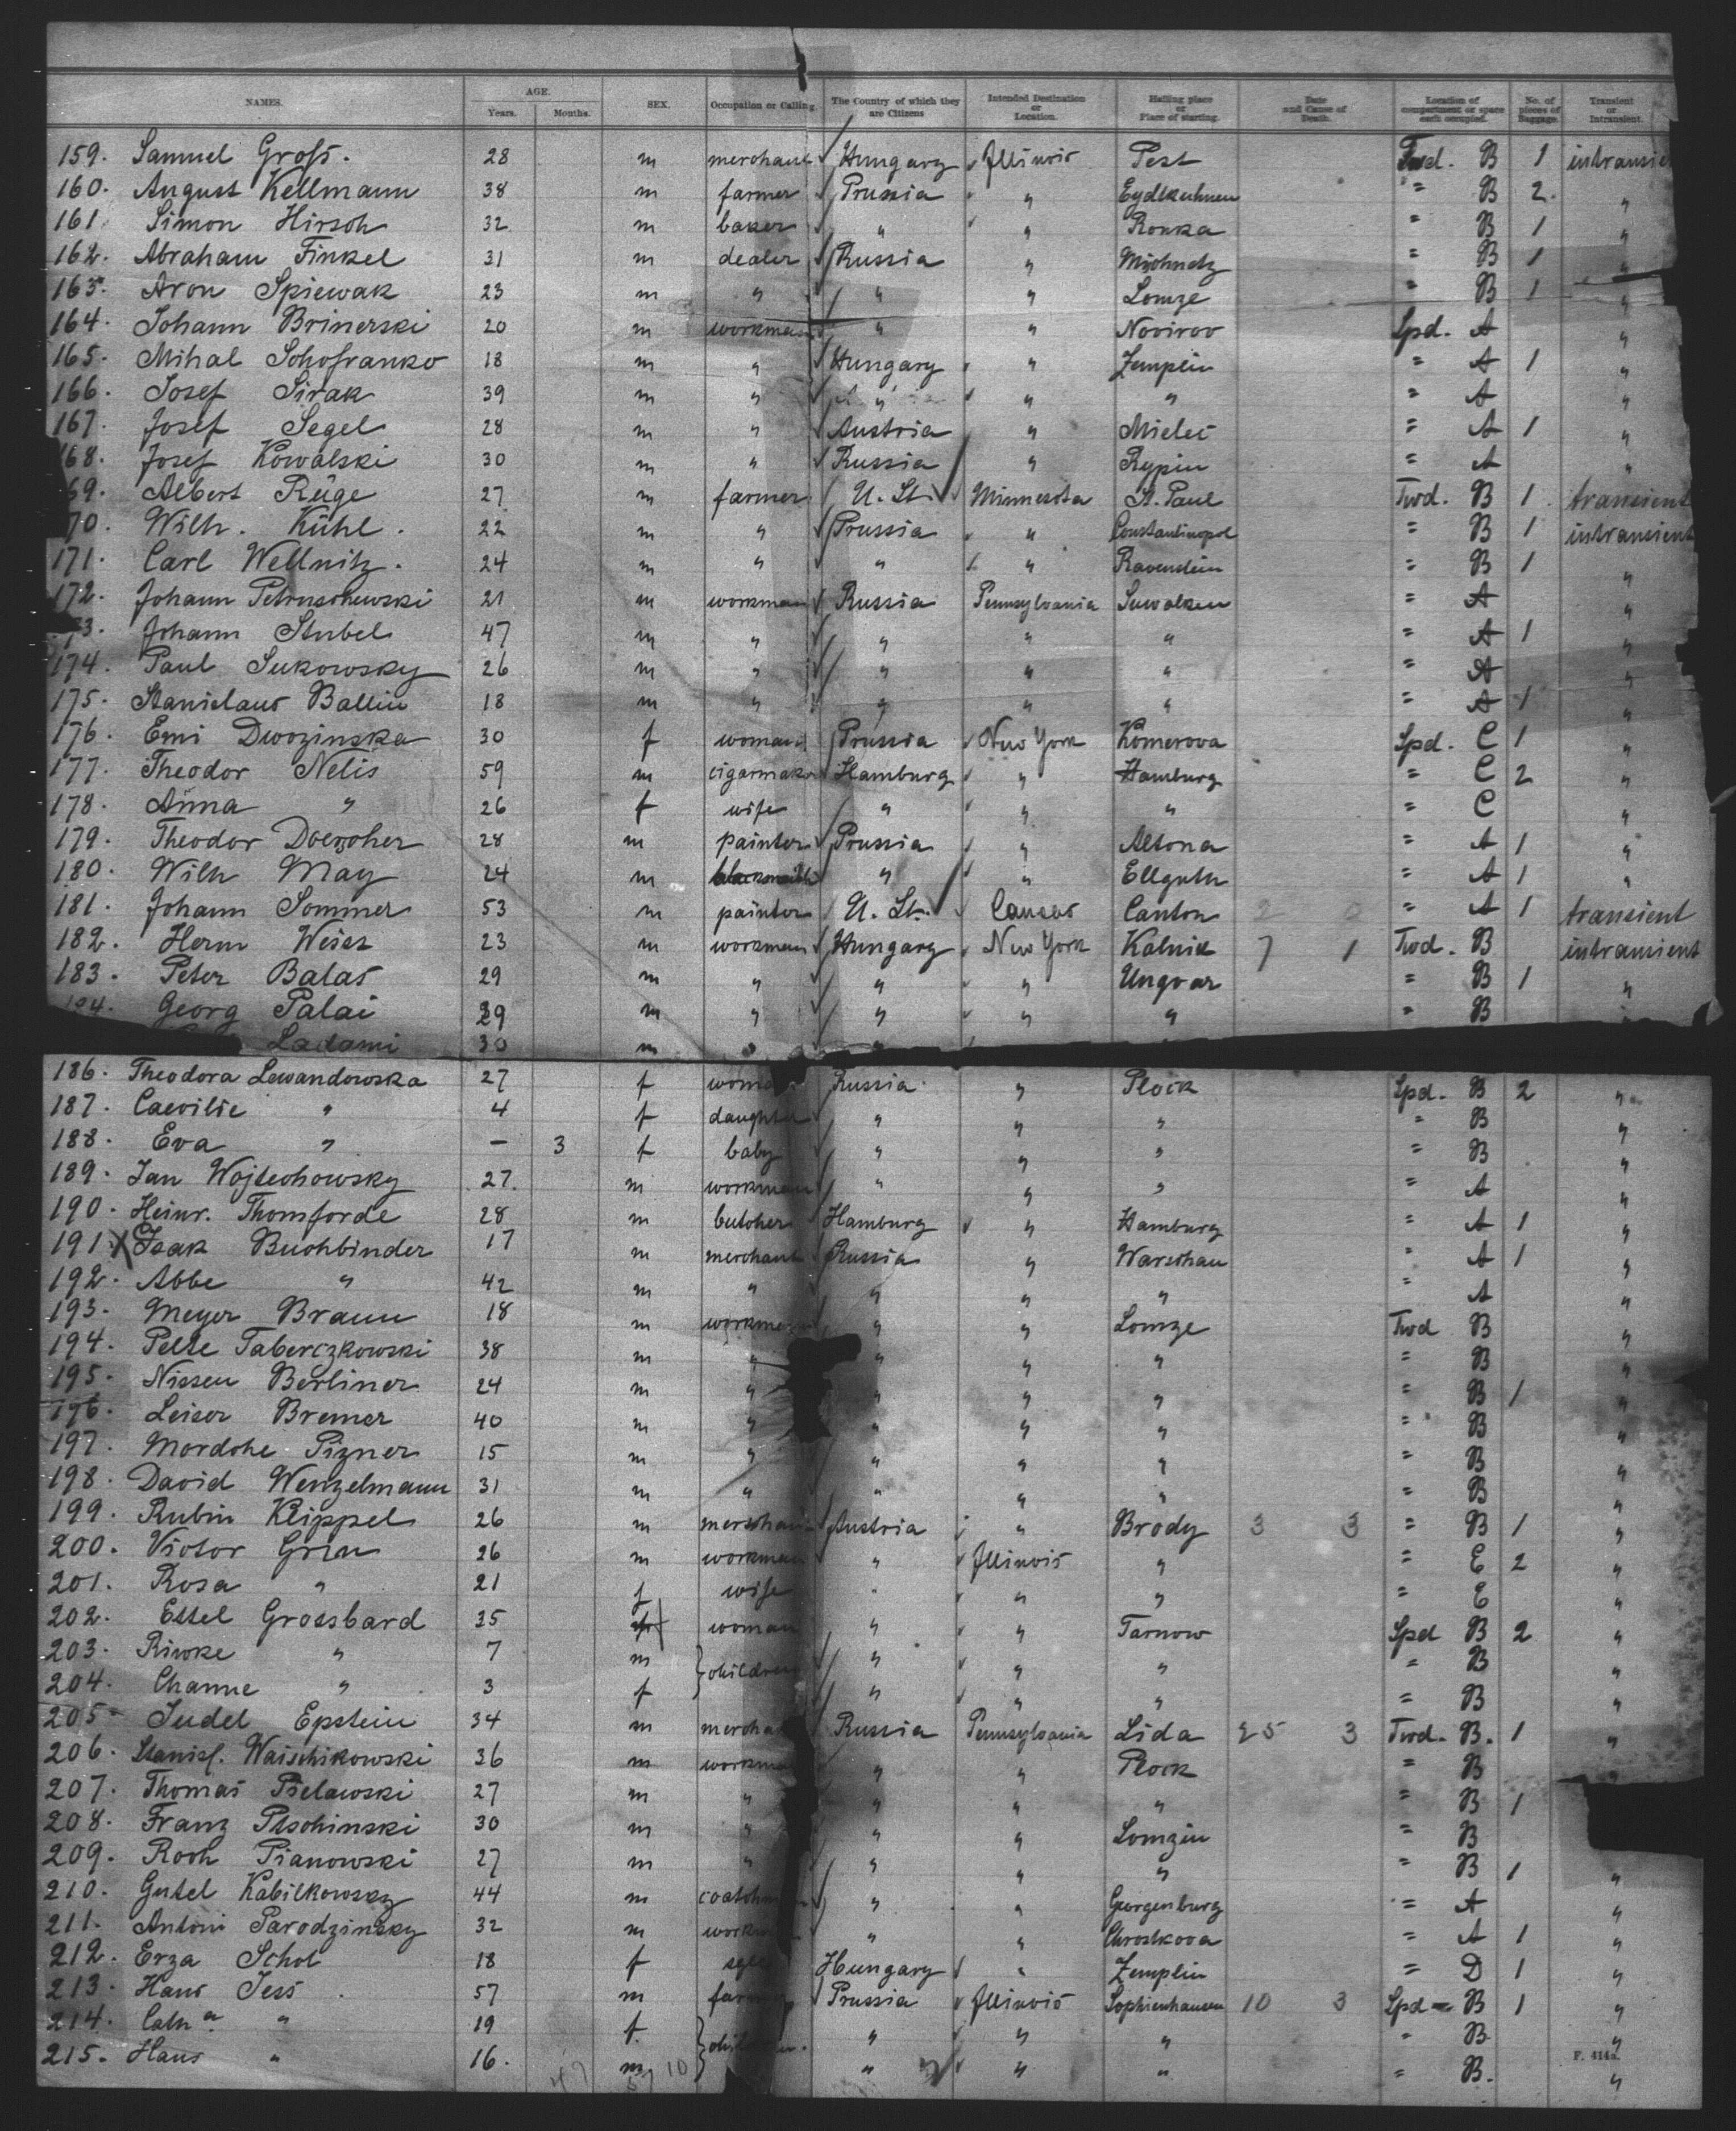 NAMES. AGE. Years. Months. SEX. Occupation or Calling. The Country of which they are Citizens Intended Destination or Location. Hailing place or Place of starting. Date and Cause of Death. Location of compartment or space each occupied. No. of pieces of Baggage. Transient or Intransient.
159. Samuel Groß. 28 m merchant Hungary Illinois Pest Twd. B 1 intransient
160. August Kellmann 38 m farmer Prussia " Eydtkuhnen " B 2. "
161. Simon Hirsch 32 m baker " " Ronka " B 1 "
162. Abraham Finkel 31 m dealer Russia " " B 1 "
163. Aron Spiewak 23 m " " " Lomze " B 1 "
164. Johann Brinerski 20 m workman " " Novirov Spd. A "
165. Mihal Schofranko 18 m " Hungary " Zemplin " A 1 "
166. Josef Sirak 39 m " " " " " A "
167. Josef Segel 28 m " Austria " Mielec " A 1 "
168. Josef Kowalski 30 m " Russia " Rypin " A "
69. Albert Rüge 27 m farmer U. St. Minnesota St. Paul Twd. B 1 transient
70. Wilh. Kühl. 22 m " Prussia " Constantinopol " B 1 intransient
171. Carl Wellnitz. 24 m " " " Ravenstein " B 1 "
172. Johann Petruschewski 21 m workman Russia Pennsylvania Suwalken " A "
73. Johann Stubel 47 m " " " " " A 1 "
174. Paul Sukowsky 26 m " " " " " A "
175. Stanislaus Ballin 18 m " " " " " A 1 "
176. Emi Dwozinska 30 f woman Prussia New York Komerova Spd. C 1 "
177. Theodor Nelis 59 m cigarmaker Hamburg " Hamburg " C 2 "
178. Anna " 26 f wife " " " " C "
179. Theodor 28 m painter Prussia " Altona " A 1 "
180. Wilh May 24 m blacksmith " " Ellguth " A 1 "
181. Johann Sommer 53 m painter U. St. Canton " A 1 transient
182. Herm Weiss 23 m workman Hungary New York Kalnik 7 1 Twd. B intransient
183. Peter Balas 29 m " " " Ungvar " B 1 "
184. Georg Palai 29 m " " " " " B "
Ladami 30 m " "
186. Theodora Lewandowska 27 f woman Russia " Plock Spd. B 2 "
187. Caecilie " 4 f daughter " " " " B "
188. Eva " – 3 f baby " " " " B "
189. Jan Wojtechowsky 27. m workman " " " " A "
190. Heinr. Thomforde 28 m butcher Hamburg " Hamburg " A 1 "
191. X Isak Buchbinder 17 m merchant Russia " Warschau " A 1 "
192. Abbe " 42 m " " " " " A "
193. Meyer Braun 18 m workman " " Lomze Twd B "
194. Pelte Taberczkowski 38 m " " " " " B "
195. Nissen Berliner 24 m " " " " " B 1 "
196. Leiser Bremer 40 m " " " " " B "
197. Mordche Pizner 15 m " " " " " B "
198. David Wenzelmann 31 m " " " " " B "
199. Rubin Klippel 26 m merchant Austria " Brody 3 3 " B 1 "
200. Victor Grün 26 m workman " Illinois " " E 2 "
201. Rosa " 21 f wife " " " " E "
202. Ettel Grossbard 35 f woman " " Tarnow Spd B 2 "
203. Riwke " 7 m children " " " " B "
204. Channe " 3 f " " " " B "
205. Judel Epstein 34 m merchant Russia Pennsylvania Lida 25 3 Twd. B. 1 "
206. Stanisl. Waischikowski 36 m workman " " Plock " B
207. Thomas Pselawski 27 m " " " " " B 1
208. Franz Ptschinski 30 m " " " Lomzin " B
209. Roch Pianowski 27 m " " " " " B 1 "
210. Gutel Kabilkowsky 44 m " " Georgenburg " A "
211. Antoni Parodzinsky 32 m workman " " Chroskova " A 1 "
212. Erza Schol 18 f Hungary " Zemplin " D 1 "
213. Hans Jess. 57 m farmer Prussia Illinois Sophienhausen 10 3 Spd = B 1 "
214. Cath a " 19 f. children. " " " " B. "
215. Hans " 16. m " " " " B. "
F. 414a.